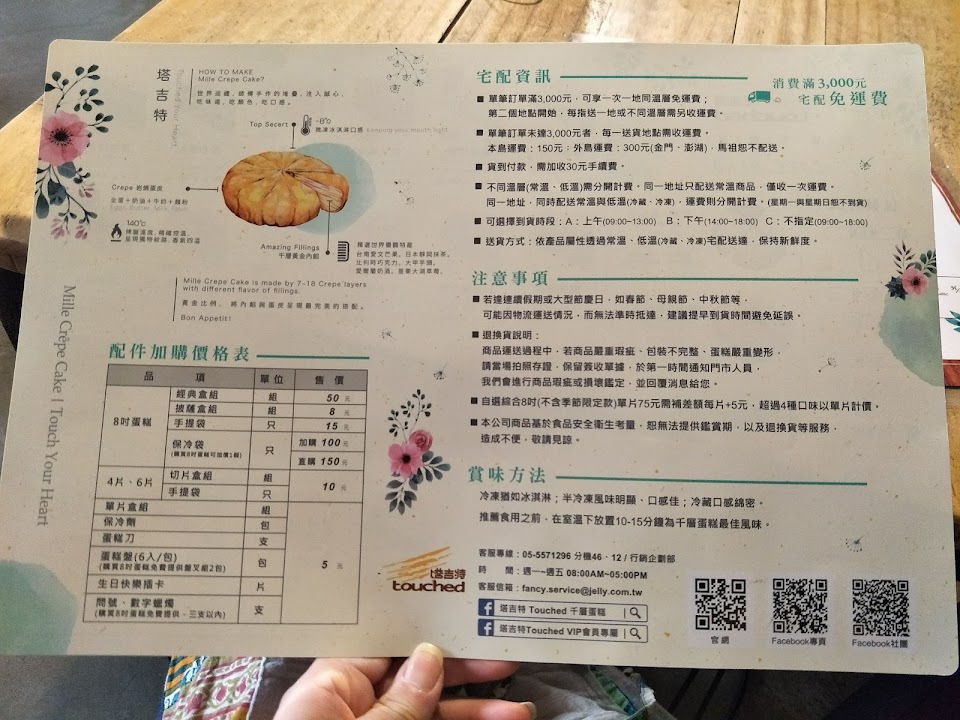 塔吉特
Touched Your Heart
HOW TO MAKE
Mille Crepe Cake?
世界巡禮，錦裸手作的堆疊，注入誠心，
吃味道，吃顏色，吃口感。
Top Secert
-8℃
微凍冰淇淋口感 Keeping your mouth light
Crepe 岩燒蛋皮
全蛋+奶油+牛奶+麵粉
140℃
烤層溫度，精確控溫，
呈現獨特紋路，香氣四溢
Amazing Fillings
千層黃金內餡
臻選世界優質特產
台南愛文芒果、日本靜岡抹茶、
比利時巧克力、大甲芋頭、
愛爾蘭奶酒、苗栗大湖草莓。
Mille Crepe Cake is made by 7-18 Crepe layers
with different flavor of fillings.
黃金比例，將內餡與蛋皮呈現最完美的搭配。
Bon Appetit!
Mille Crêpe Cake | Touch Your Heart
配件加購價格表
品 項 單位 售 價
8吋蛋糕 經典盒組 組 50 元
披薩盒組 組 8 元
手提袋 只 15 元
保冷袋 只 加購 100 元
(購買8吋蛋糕可加價1個) 直購 150 元
4片、6片 切片盒組 組 10 元
手提袋 只
單片盒組 組
保冷劑 包
蛋糕刀 支
蛋糕盤(6入/包) 包 5 元
(購買8吋蛋糕免費提供盤叉組2包)
生日快樂插卡 片
問號、數字蠟燭 支
(購買8吋蛋糕免費提供、三支以內)
宅配資訊
消費滿3,000元
宅配免運費
■ 單筆訂單滿3,000元，可享一次一地同溫層免運費；
第二個地點開始，每指送一地或不同溫層需另收運費。
■ 單筆訂單未達3,000元者，每一送貨地點需收運費。
本島運費：150元；外島運費：300元(金門、澎湖)，馬祖恕不配送。
■ 貨到付款，需加收30元手續費。
■ 不同溫層(常溫、低溫)需分開計費。同一地址只配送常溫商品，僅收一次運費。
同一地址，同時配送常溫與低溫(冷藏、冷凍)，運費則分開計費。(星期一與星期日恕不到貨)
■ 可選擇到貨時段：A：上午(09:00~13:00) B：下午(14:00~18:00) C：不指定(09:00~18:00)
■ 送貨方式：依產品屬性透過常溫、低溫(冷藏、冷凍)宅配送達，保持新鮮度。
注意事項
■ 若達連續假期或大型節慶日，如春節、母親節、中秋節等，
可能因物流運送情況，而無法準時抵達，建議提早到貨時間避免延誤。
■ 退換貨說明：
商品運送過程中，若商品嚴重瑕疵、包裝不完整、蛋糕嚴重變形，
請當場拍照存證，保留簽收單據，於第一時間通知門市人員，
我們會進行商品瑕疵或損壞鑑定，並回覆消息給您。
■ 自選綜合8吋(不含季節限定款)單片75元需補差額每片+5元，超過4種口味以單片計價。
■ 本公司商品基於食品安全衛生考量，恕無法提供鑑賞期，以及退換貨等服務，
造成不便，敬請見諒。
賞味方法
冷凍猶如冰淇淋；半冷凍風味明顯、口感佳；冷藏口感綿密。
推薦食用之前，在室溫下放置10-15分鐘為千層蛋糕最佳風味。
塔吉特
touched
客服專線：05-5571296 分機46、12 / 行銷企劃部
時 間：週一~週五 08:00AM~05:00PM
客服信箱：fancy.service@jelly.com.tw
塔吉特 Touched 千層蛋糕
塔吉特Touched VIP會員專屬
官網
Facebook專頁
Facebook社團